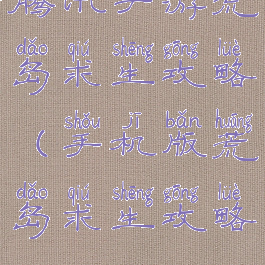 腾讯手游荒
dǎo qiú shēng gōng lüè
岛求生攻略
shǒu jī bǎn huāng
（手机版荒
dǎo qiú shēng gōng lüè
岛求生攻略